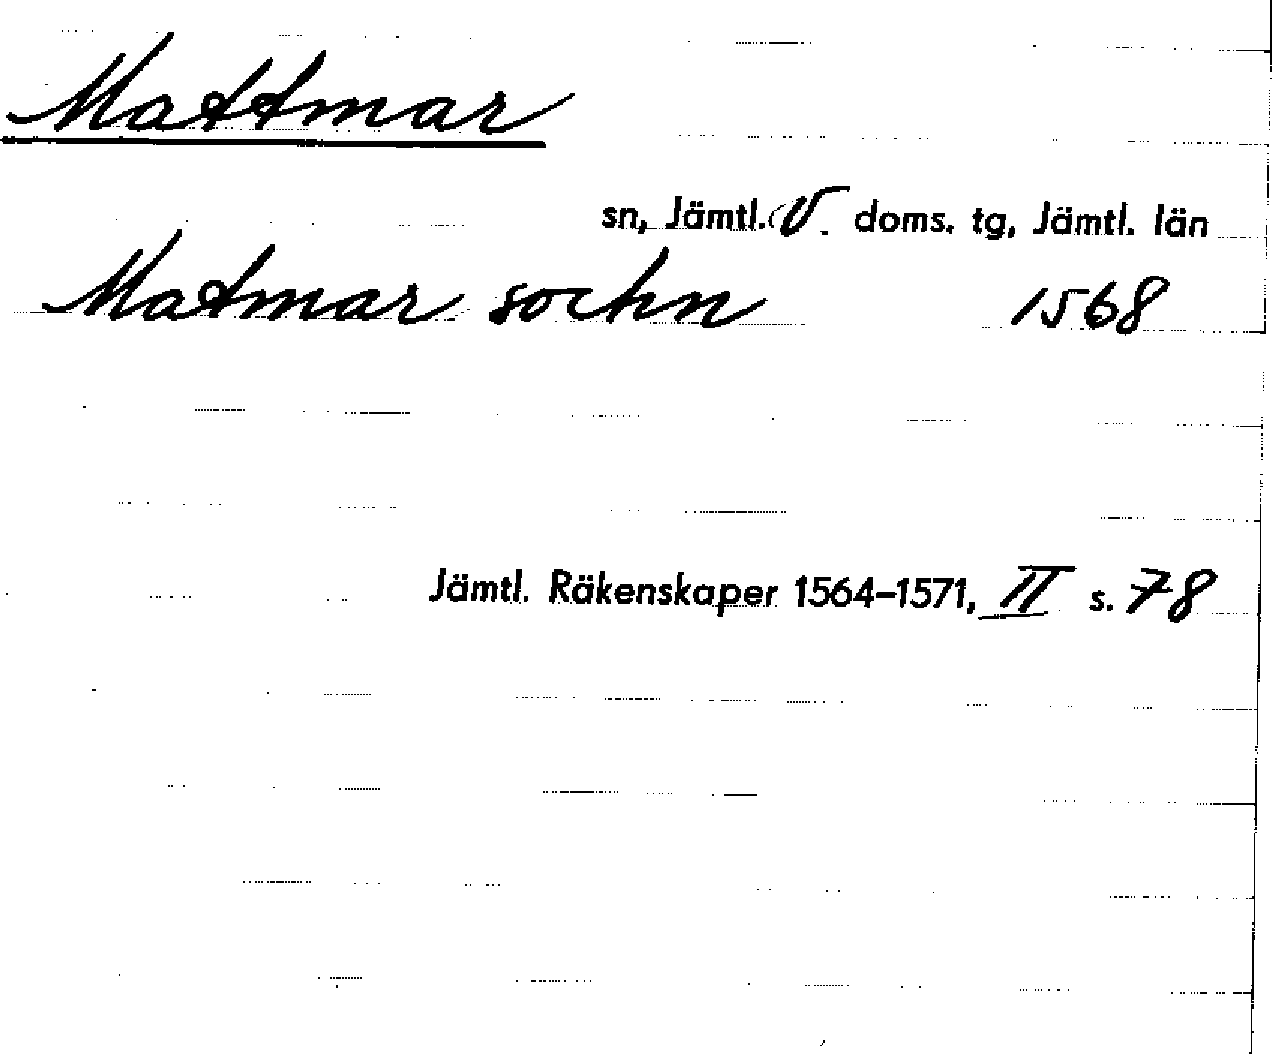 Mattmar
sn, Jämtl. V. doms. tg, Jämtl. län
Matmar sochn 1568
Jämtl. Räkenskaper 1564–1571, II s. 78